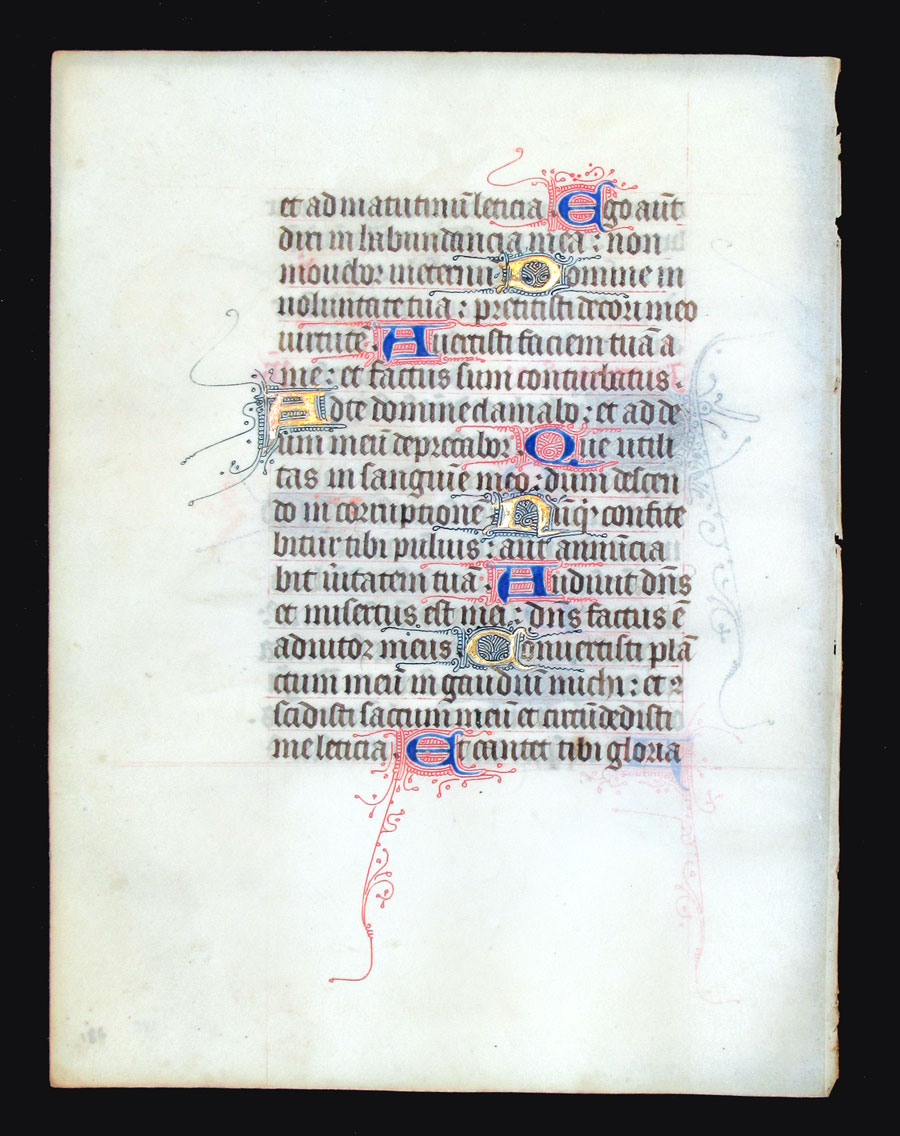 et ad matutinū leticia. Ego aūt
dixi in habundancia mea: non
mouebor in eternū. Domine in
uoluntate tua: prestitisti decori meo
uirtutē. Auertisti faciem tuā a
me: et factus sum conturbatus.
Ad te domine clamabo: et ad de
um meū deprecabor. Que utili
tas in sanguīe meo: dum descen
do in corruptionē. Nūq̄ confite
bitur tibi puluis: aut annūcia
bit ūitatem tua. Audiuit dn̄s
et misertus est mei: dn̄s factus ē
adiutor meus. Conuertisti plā
ctum meū in gaudiū michi: et
scidisti saccum meū et circūdedisti
me leticia. Et cantet tibi gloria